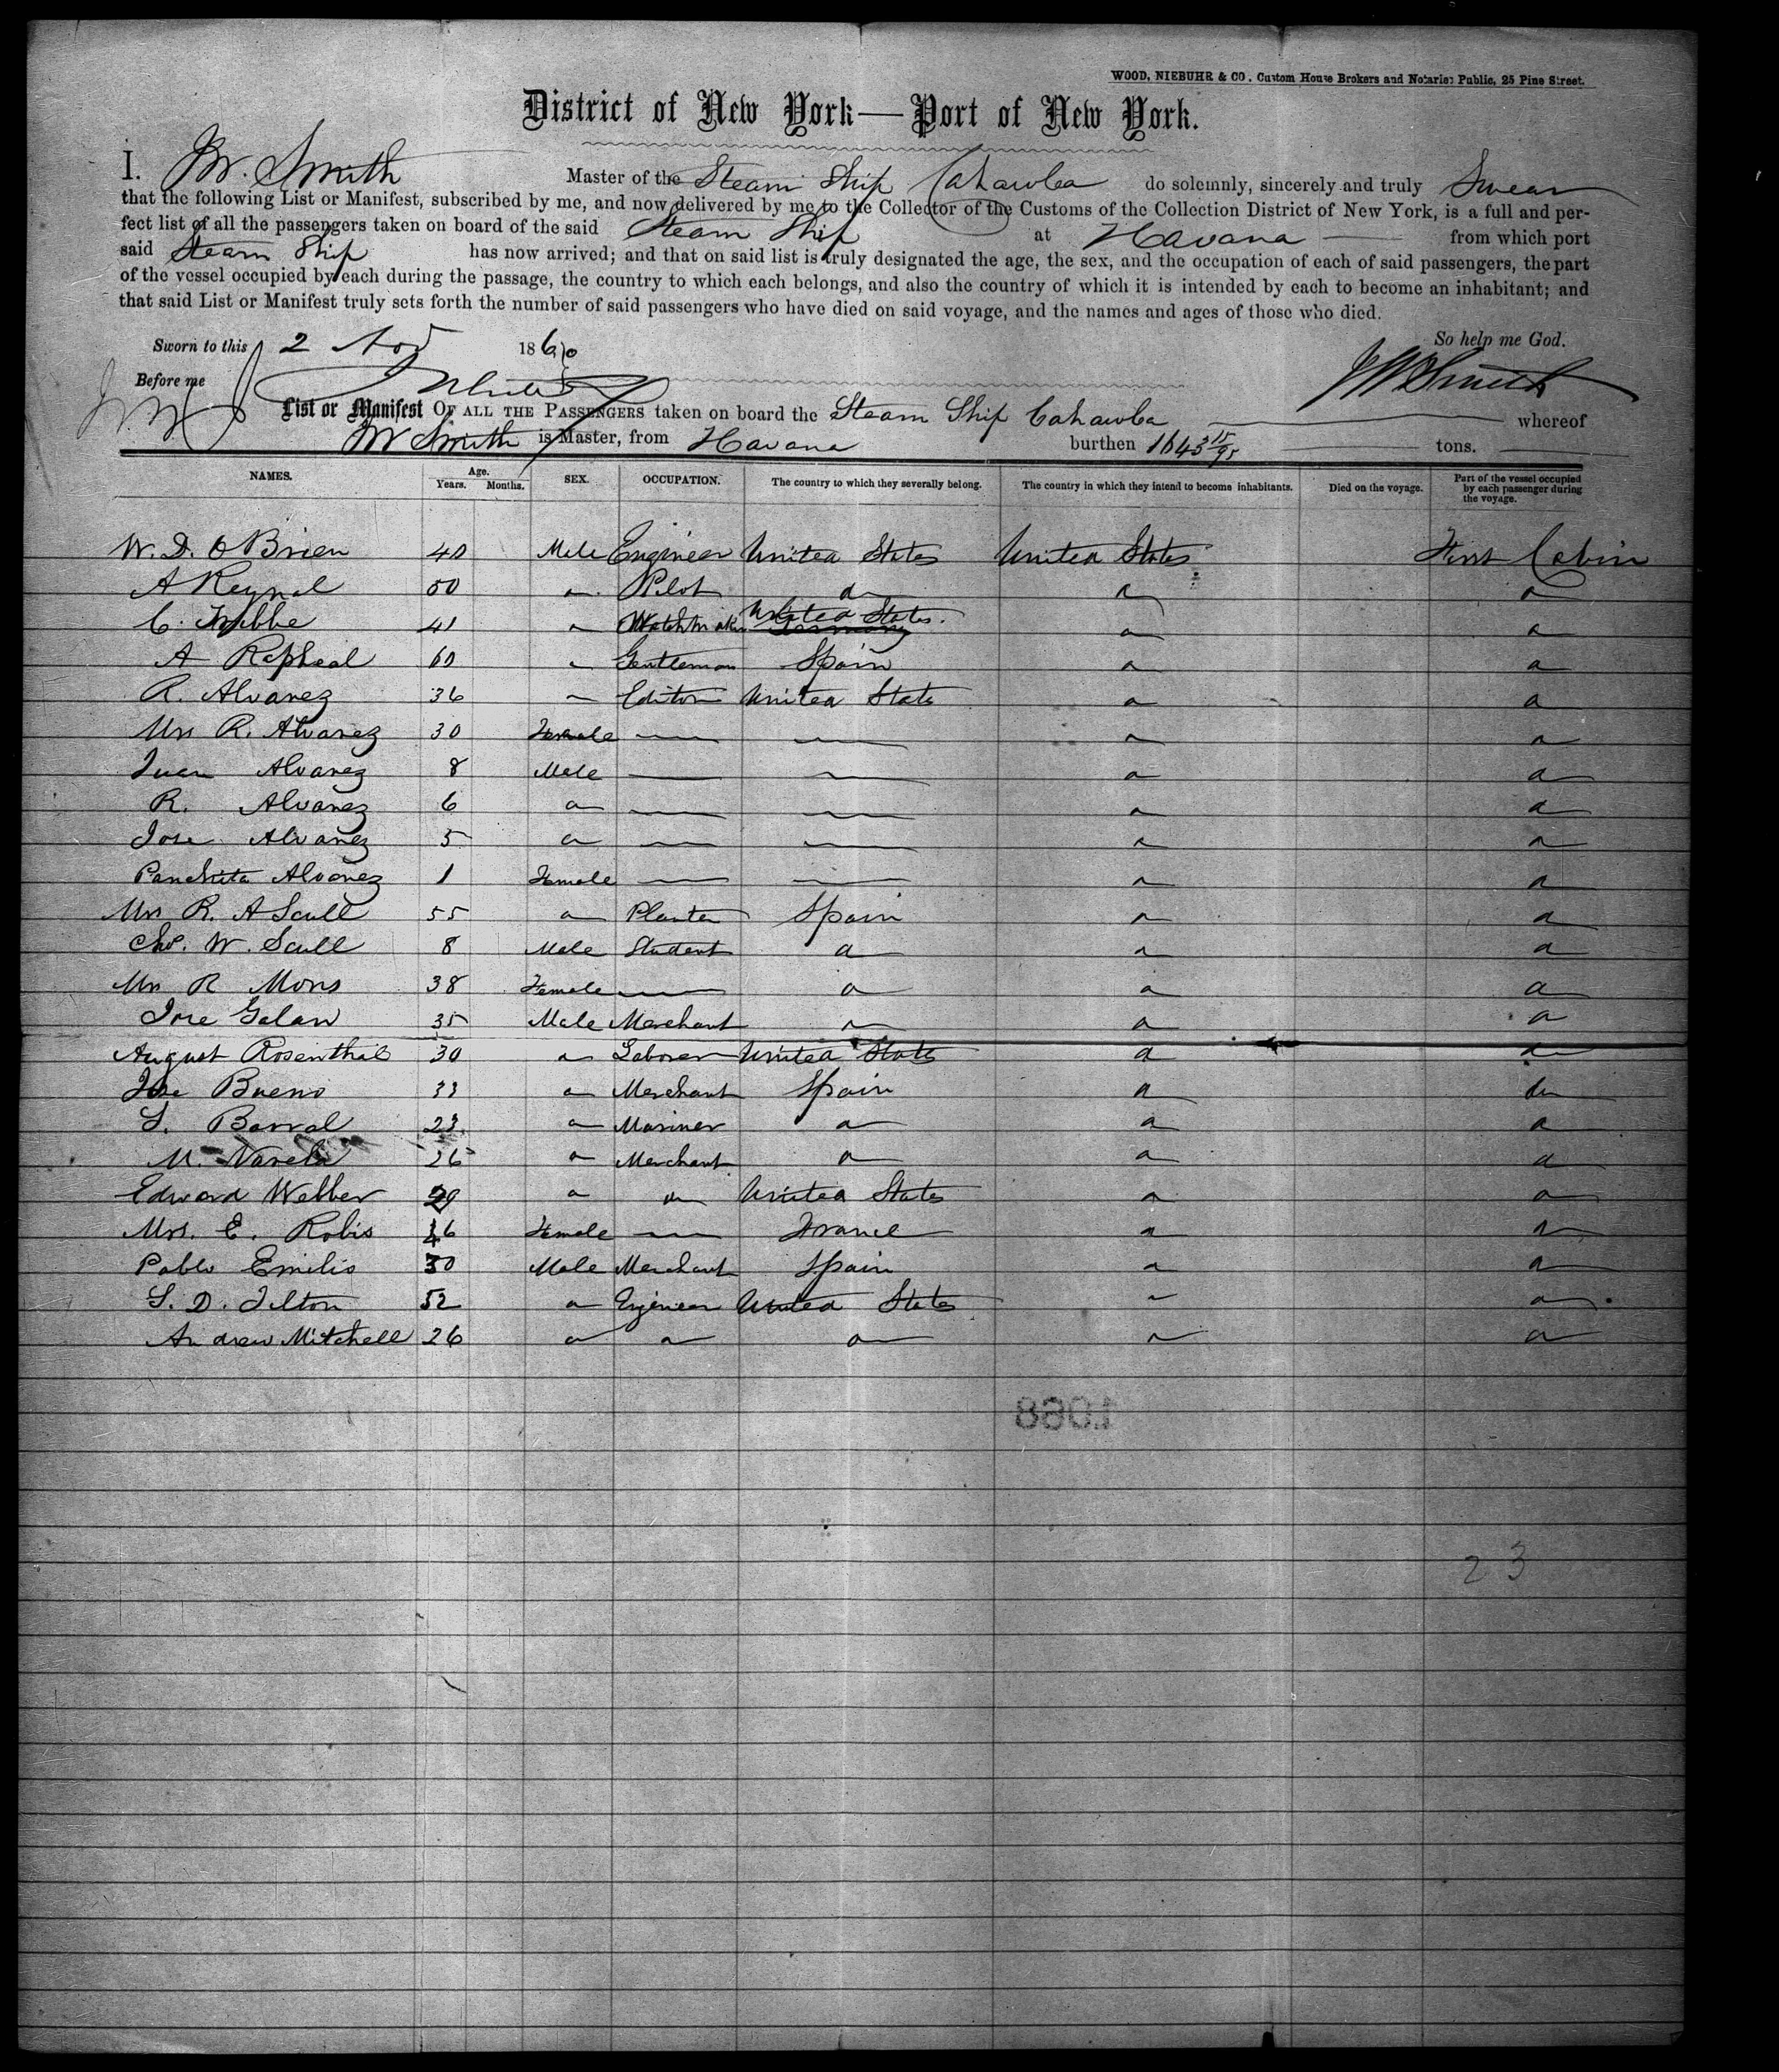 WOOD, NIEBUHR & CO. Custom House Brokers and Notaries Public, 25 Pine Street.
District of New York—Port of New York.
I. JW. Smith Master of the Steam Ship Cahawba do solemnly, sincerely and truly Swear
that the following List or Manifest, subscribed by me, and now delivered by me to the Collector of the Customs of the Collection District of New York, is a full and per-
fect list of all the passengers taken on board of the said Steam Ship at Havana from which port
said Steam Ship has now arrived; and that on said list is truly designated the age, the sex, and the occupation of each of said passengers, the part
of the vessel occupied by each during the passage, the country to which each belongs, and also the country of which it is intended by each to become an inhabitant; and
that said List or Manifest truly sets forth the number of said passengers who have died on said voyage, and the names and ages of those who died.
Sworn to this 2 Nov 1860 So help me God.
Before me JW Smith
List or Manifest OF ALL THE PASSENGERS taken on board the Steam Ship Cahawba whereof
JW Smith is Master, from Havana burthen 1643 15/95 tons.
NAMES. Age. Years. Months. SEX. OCCUPATION. The country to which they severally belong. The country in which they intend to become inhabitants. Died on the voyage. Part of the vessel occupied by each passenger during the voyage.
W. D. OBrien 40 Male Engineer United States United States First Cabin
A Reynal 50 " Pilot " " "
C. 41 " Watchmaker United States. Germany " "
A Rapheal 60 " Gentleman Spain " "
R. Alvarez 36 " Editor United States " "
Mrs R. Alvarez 30 Female — — " "
Juan Alvarez 8 Male — — " "
R. Alvarez 6 " — — " "
Jose Alvarez 5 " — — " "
Panchita Alvarez 1 Female — — " "
Mrs R. A Scull 55 " Planter Spain " "
Chs. W. Scull 8 Male Student " " "
Mrs R Mons 38 Female — " " "
Jose Galan 35 Male Merchant " " "
August Rosenthal 30 " Laborer United States " "
Jose Bueno 33 " Merchant Spain " "
S. Barral 23 " Mariner " " "
M. Varela 26 " Merchant " " "
Edward Webber " " United States " "
Mrs. E. Robis 46 Female — France " "
Pablo Emilio 30 Male Merchant Spain " "
S. D. Tilton 52 " Engineer United States " "
Andrew Mitchell 26 " " " " "
1068
23